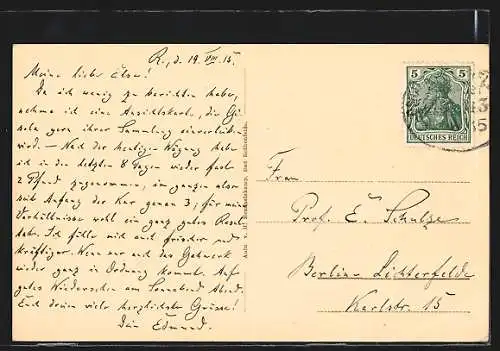 R., d. 19. VIII. 15.
Meine liebe Elsa!
Da ich wenig zu berichten habe,
nehme ich eine Ansichtskarte, die
gern ihrer Sammlung einverleiben
wird. – Nach der heutigen Wägung habe
ich in den letzten 8 Tagen wieder fast
2 Pfund zugenommen, im ganzen also
seit Anfang der Kur genau 3; für meine
Verhältnisse wohl ein ganz gutes Resul-
tat. Ich fühle mich auch frischer und
kräftiger. Wenn nur auch das Gehwerk
wieder ganz in Ordnung kommt. Auf
gutes Wiedersehen am Sonnabend Abend.
Und Deine viele herzlichste Grüsse!
Dein Edmund.
5 5
DEUTSCHES REICH
Frau
Prof. E. Schulze
Berlin Lichterfelde
Karlstr. 15